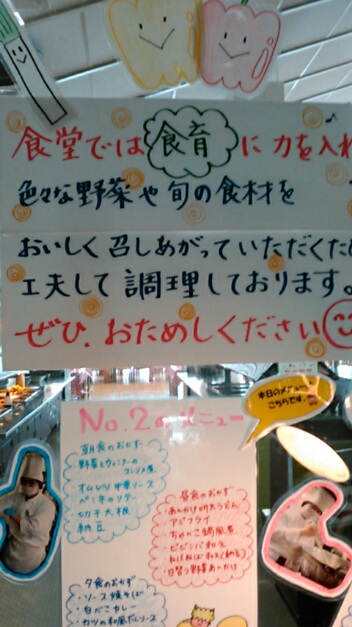 食堂では食育に力を入れ
色々な野菜や旬の食材を
おいしく召しあがっていただくため
工夫して調理しております。
ぜひ、おためしください
本日のメニュー
こちらです。
No.2のメニュー
朝食のおかず
野菜とウィンナーの
コンソメ煮
オムレツ中華ソース
切干大根
納豆
昼食のおかず
あんかけ焼きうどん
アジフライ
ビビンバ
日替り野菜あっかけ
夕食のおかず
・ソース焼そば
カレー
・カツの和風だしソース